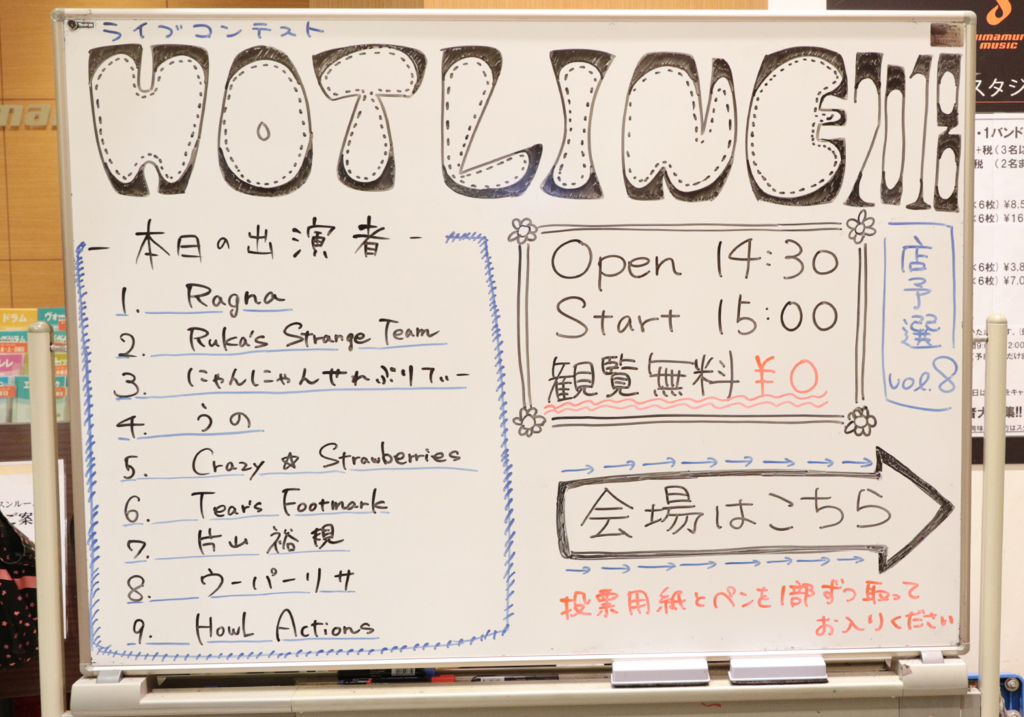 ライブコンテスト
HOTLINE2018
- 本日の出演者 -
1. Ragna
2. Ruka's Strange Team
3. にゃんにゃんせれぶりてぃー
4. うの
5. Crazy ☆ Strawberries
6. Tear's Footmark
7. 片山 裕規
8. ウーパーリサ
9. Howl Actions
Open 14:30
Start 15:00
観覧無料 ¥0
店予選
vol.8
会場はこちら
投票用紙とペンを1部ずつ取って
お入りください
MUSIC
スタジ
・1バンド
ドラム